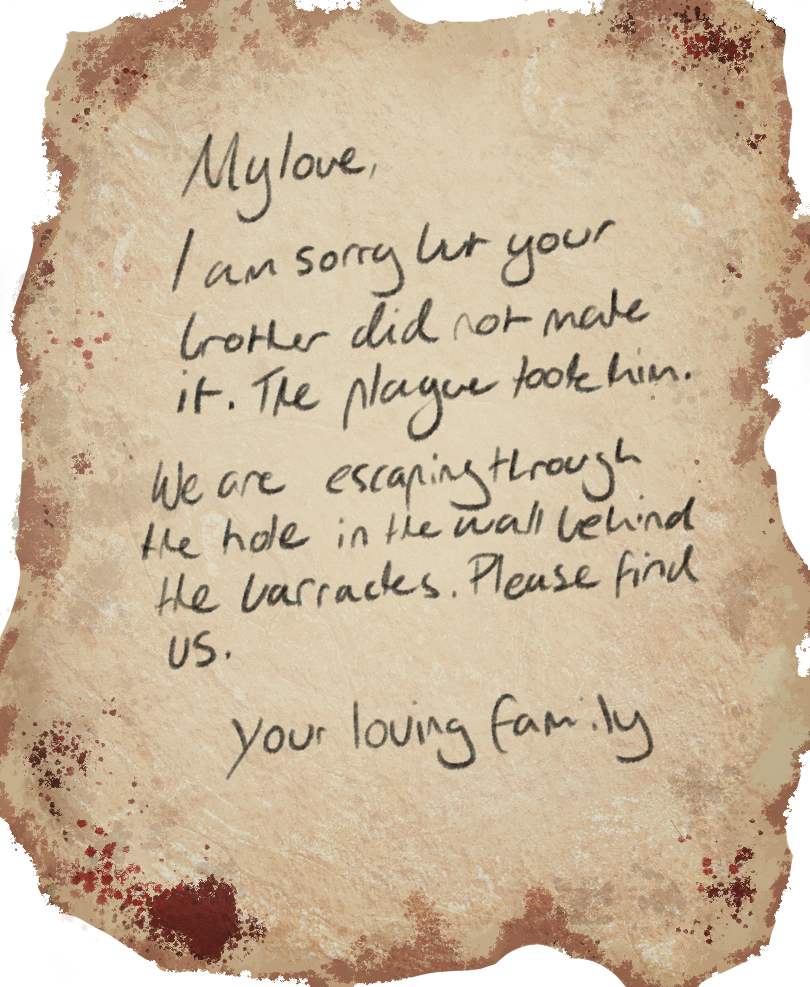 My love,
I am sorry but your
brother did not make
it. The plague took him.
We are escaping through
the hole in the wall behind
the barracks. Please find
us.
your loving family